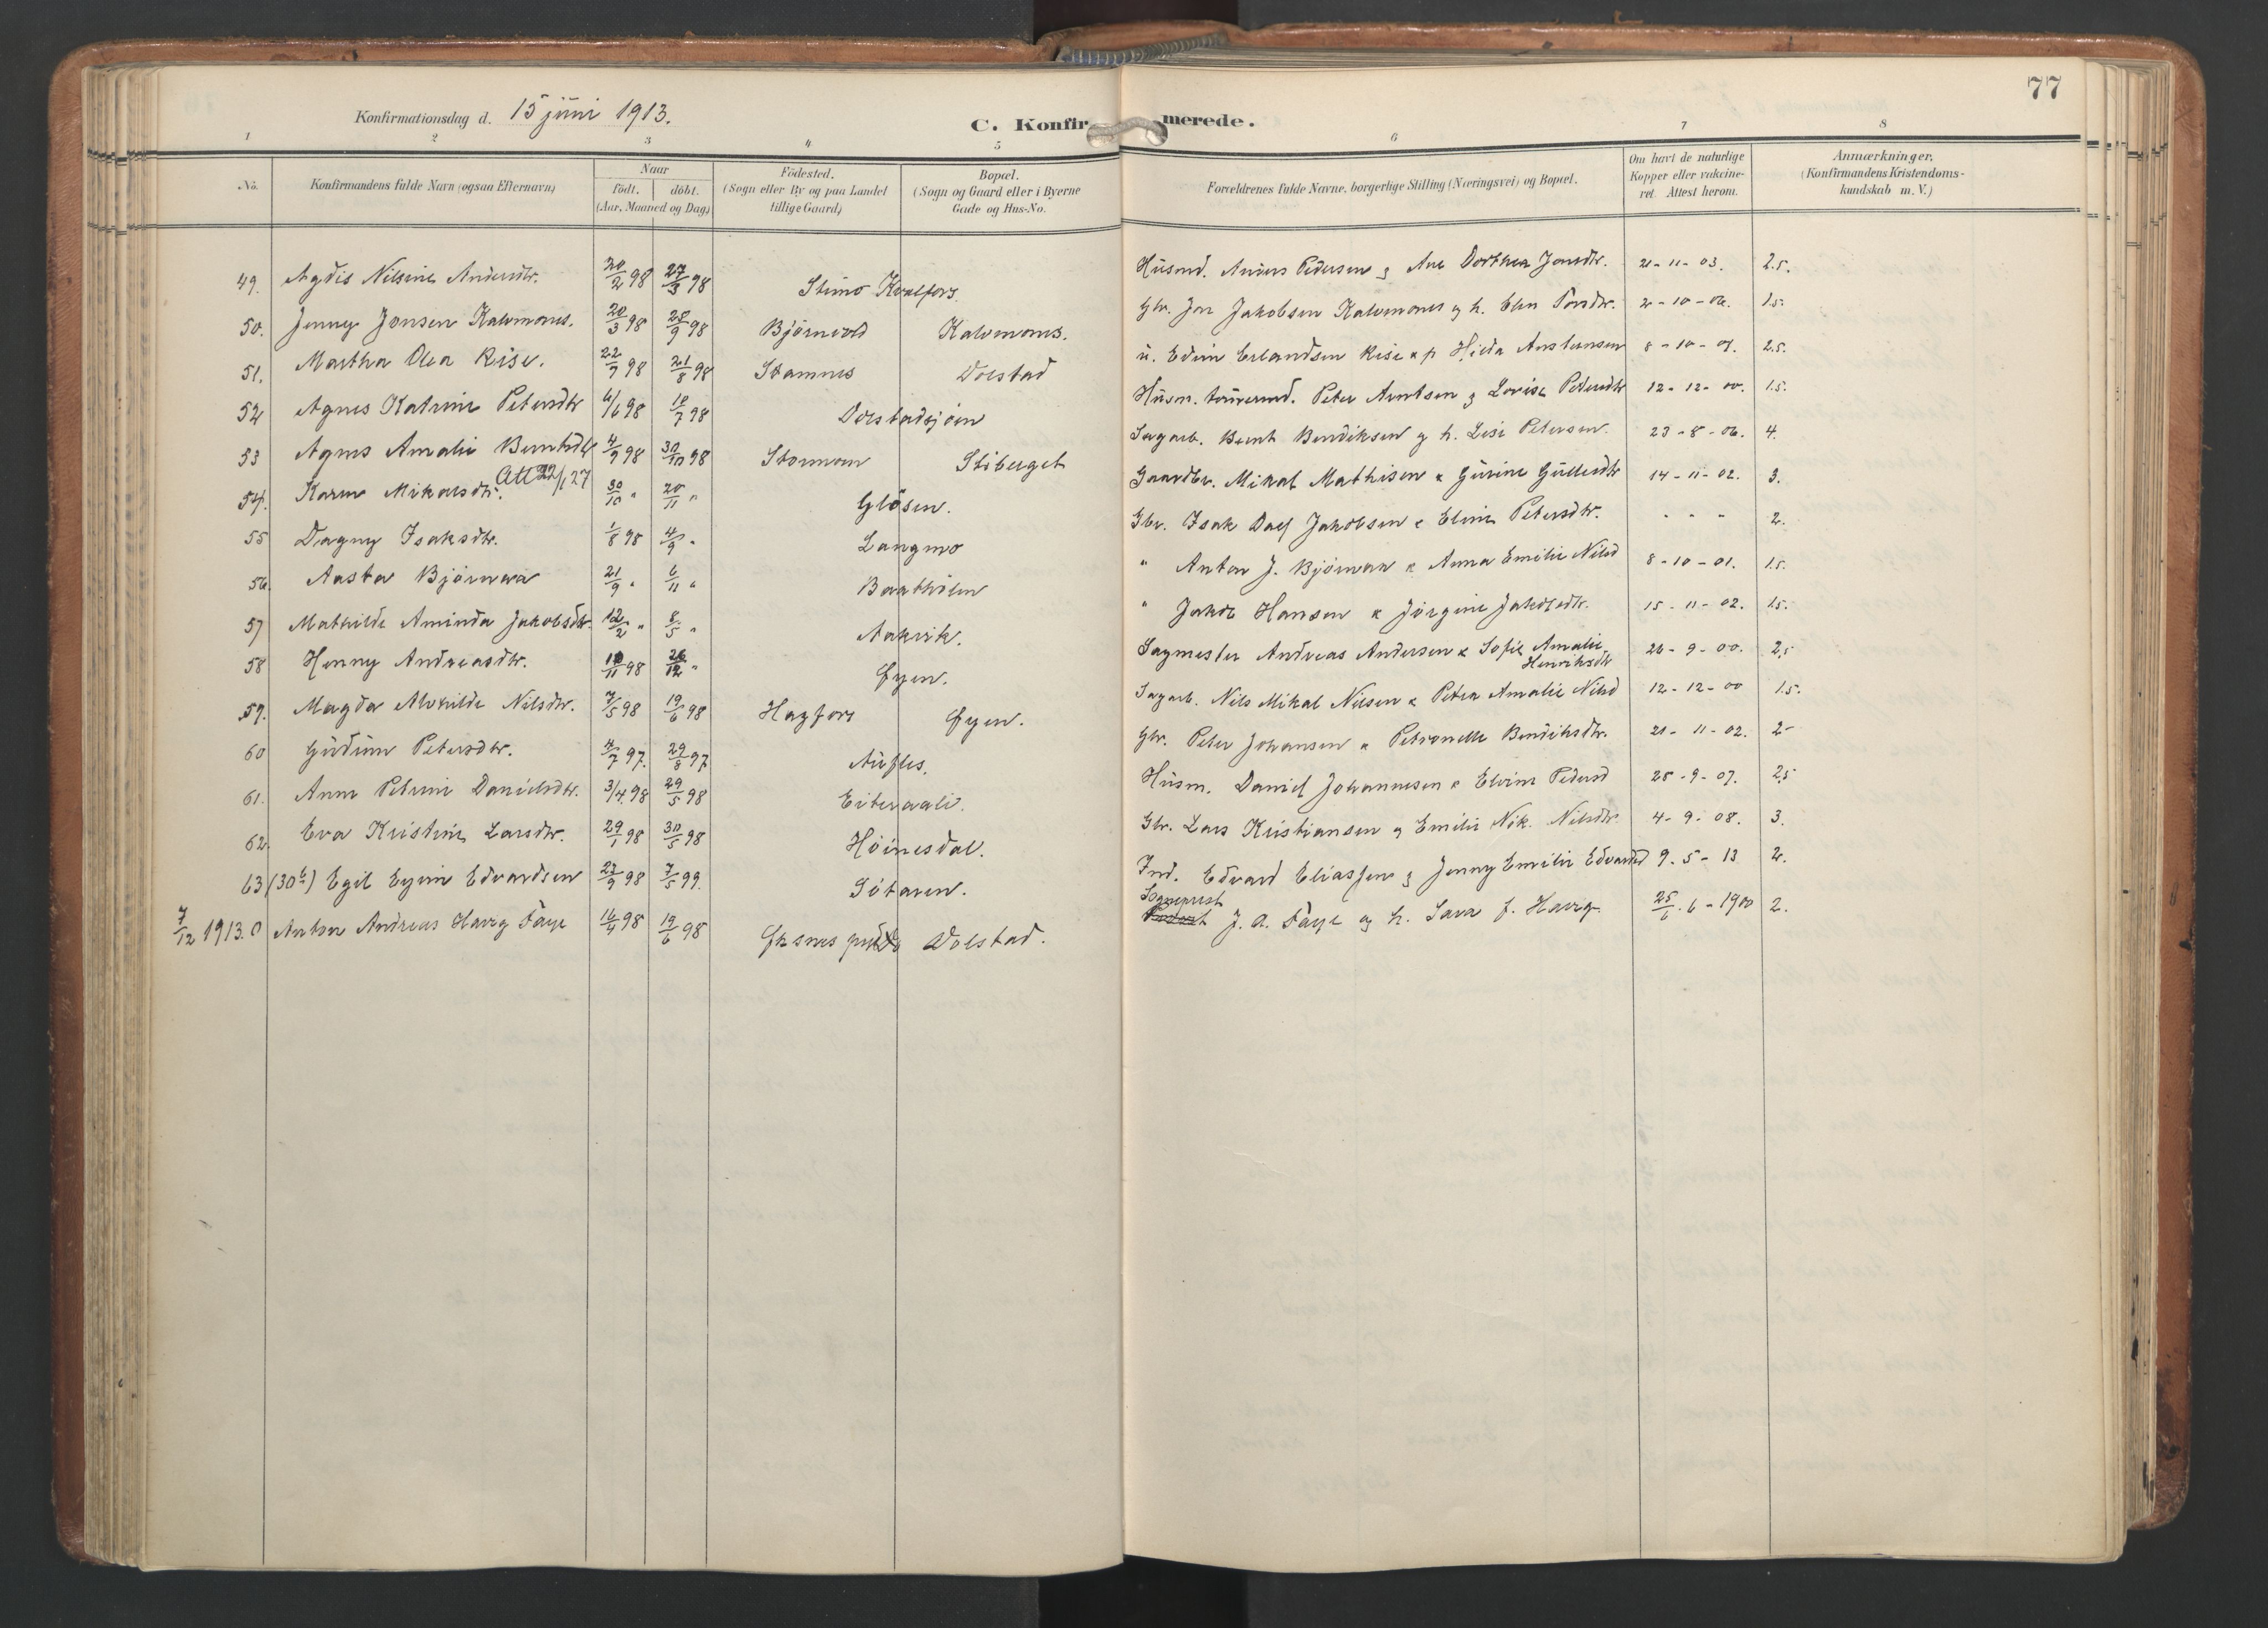 77
Konfirmationsdag d. 15 juni 1913. C. Konfirmerede.
1 2 3 4 5 6 7 8
No. Konfirmandens fulde Navn (ogsaa Efternavn) Naar født. døbt. (Aar, Maaned og Dag) Fødested. (Sogn eller By og paa Landet tillige Gaard) Bopæl. (Sogn og Gaard eller i Byerne Gade og Hus-No. Forældrenes fulde Navne, borgerlige Stilling (Næringsvei) og Bopæl. Om havt de naturlige Kopper eller vaccineret. Attest herom. Anmærkninger. (Konfirmandens Kristendomskundskab m. V.)
49. Agdis Nilsine Andersdtr. 20/2 98 27/3 98 Stimo Kvalfors. Husmd. Anders Pedersen & Ane Dorthea Jonsdtr. 21-11-03. 2.5.
50. Jenny Jonsen Kalvmoms. 20/3 98 25/9 98 Bjørnvold Kalvmoms. Gbr. Jon Jakobsen Kalvmoms og h. Elen 2-10-06. 1.5.
51. Martha Olea Rise. 22/7 98 21/8 98 Stamnes Dolstad u. Edvin Erlandsen Rise & p Hilda Anstensen 8-10-01. 2.5.
52 Agnes Katrine Petersdtr 6/6 98 18/7 98 Dolstadsjøen Husm. Peter Arntsen & Lovise Petersdtr 12-12-00. 1.5.
53 Agnes Amalie Berntsdtr 4/9 98 30/10 98 Stormoen Stiberget Sagarb. Bernt Bendiksen og h. Lise Petersen. 23-8-06. 4.
54. Karen Mikalsdtr. Att 22/1 27 30/10 " 20/11 " Gløsen. Gaardbr. Mikal Mathisen & Gurine Gullesdtr 14-11-02. 3.
55 Dagny Isaksdtr. 1/8 98 4/9 " Langmo Gbr. Isak Dass Jakobsen & Eline Petersdtr. " " " 2.
56. Aasta Bjørnaa 21/9 " 6/11 " Baatholm " Anton J. Bjørnaa & Anna Emilie Nilsd 8-10-01. 1.5.
57 Mathilde Aminda Jakobsdtr. 12/2 " 8/5 " Aakvik. " Jakob Hansen & Jørgine Jakobsdtr. 15-11-02. 1.5.
58 Henny Andreasdtr. 10/11 98 26/12 " Øyen. Sagmester Andreas Andersen & Sofie Amalie Henriksdtr 26-9-00. 2.5
59. Magda Alvhilde Nilsdtr. 7/5 98 19/6 98 Hagfors Øyen. Sagarb. Nils Mikal Nilsen & Petra Amalie Nilsd 12-12-00 1.5.
60 Gudrun Petersdtr. 4/7 97. 29/8 97 Aufles. Gbr. Peter Johansen & Petronelle Bendiksdtr. 21-11-02. 2-
61. Anne Petrine Danielsdtr. 3/4 98 29/5 98 Eiteraali. Husm. Daniel Johannesen & Elvine Pedersd 25-9-07. 2.5
62. Eva Kristine Larsdtr. 29/1 98 30/5 98 Høinesdal. Gbr. Lars Kristiansen & Emilie Nik. Nilsdtr. 4-9-08. 3.
63 (30 6) Egil Eyvin Edvardsen 23/9 98 7/5 99. Søtaren. Ind. Edvard Eliassen & Jenny Emilie Edvardsd 9-5-13 2.
7/12 1913. 0 Anton Andreas Havig Faye 16/4 98 19/6 98 Øksnes Dolstad. Sogneprest J. A. Faye og h. Sara f. Havig. 25/6. 6-1900 2.